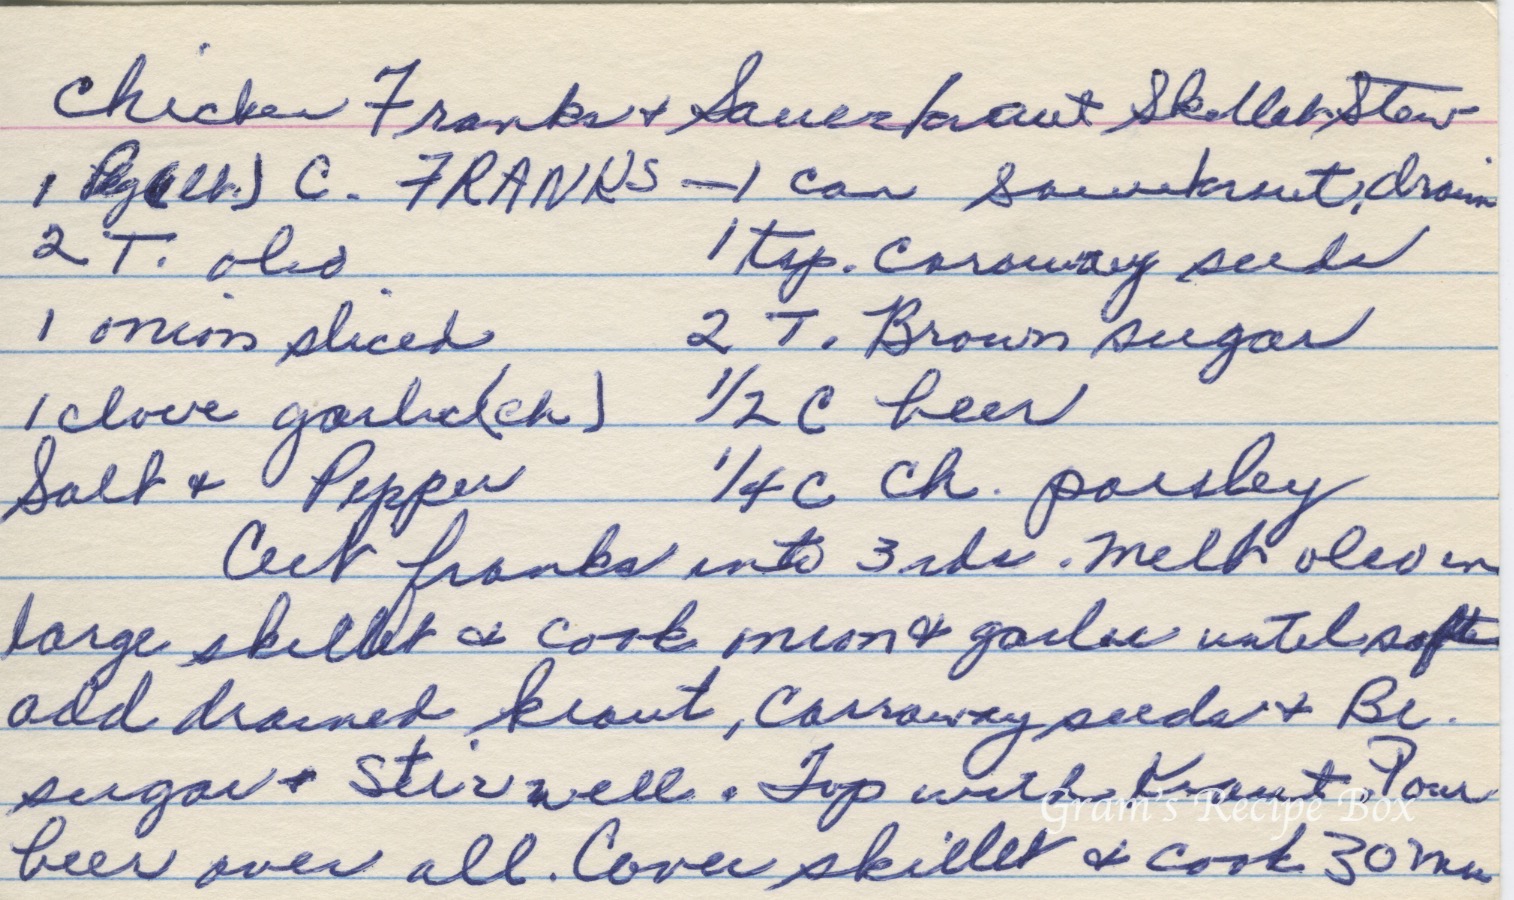 Chicken Franks + Sauerkraut Skillet Stew
1 Pkg (1 lb.) C. FRANKS — 1 can Sauerkraut, drain
2 T. oleo 1 tsp. caraway seeds
1 onion sliced 2 T. Brown sugar
1 clove garlic (ch) 1/2 C beer
Salt & Pepper 1/4 C ch. parsley
Cut franks into 3rds. Melt oleo in
large skillet & cook onion & garlic until soft
add drained kraut, Carraway seeds + Br.
sugar + Stir well. Top with Kraut Pour
beer over all. Cover skillet & cook 30 min
Gram's Recipe Box